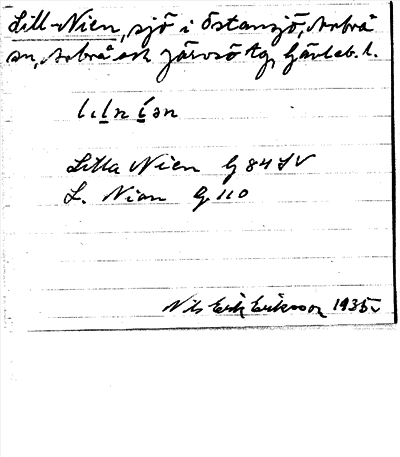 Lill-Nien, sjö i Östansjö, Arbrå
sn, Arbrå och Järvsö tg, Gävleb. l.
Lilla Nien G 84 SV
L. Nian G 110
Nils Erik Eriksson 1935